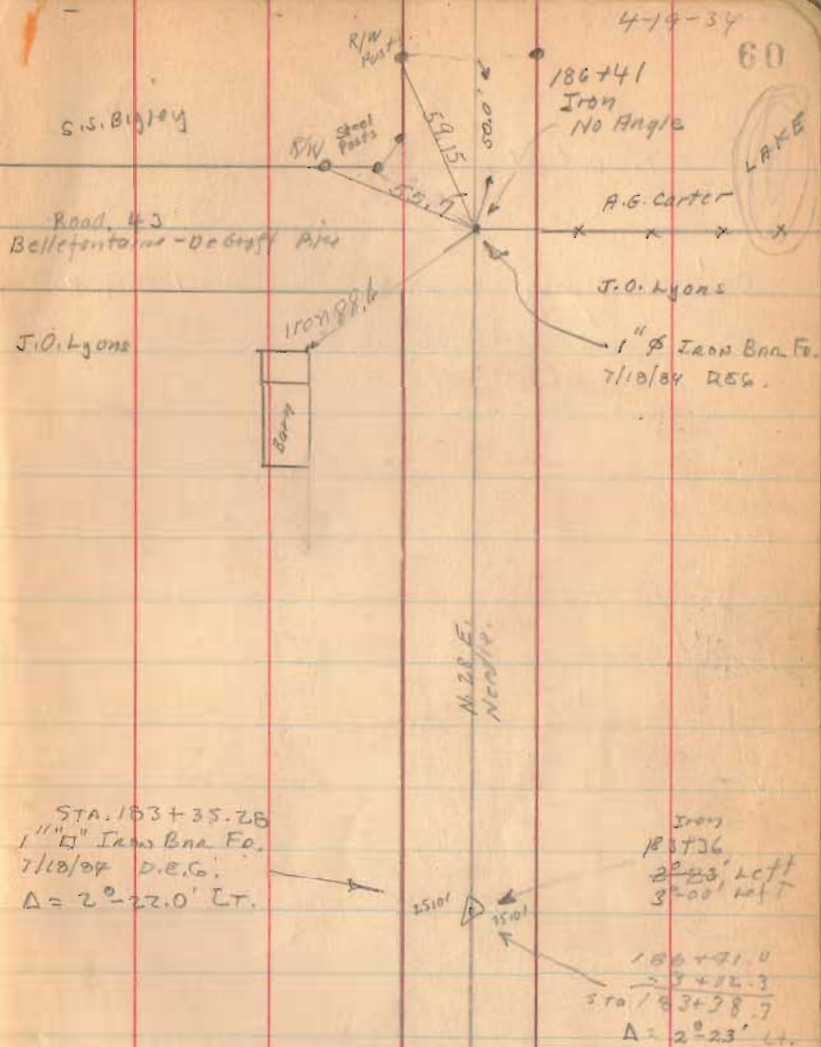 4-19-34
60
R/W
Post
186+41
Iron
No Angle
50.0'
59.15
S.S. Bigley
R/W
Steel
Posts
55.7
LAKE
A.G. Carter
Road 43
Bellefontaine - DeGraff Pike
J.O. Lyons
Iron 88.6
J.O. Lyons
1" ϕ IRON BAR FD.
7/18/84 D.E.G.
Barn
N. 28 E.
Needle.
STA. 183+35.28
1" "□" IRON BAR FD.
7/18/84 D.E.G.
Δ = 2°-22.0' LT.
Iron
183+36
2°-23' Left
3°-00' Left
25.0'
25.0'
186+41.0
3+02.3
STA 183+38.7
Δ = 2°-23' Lt.